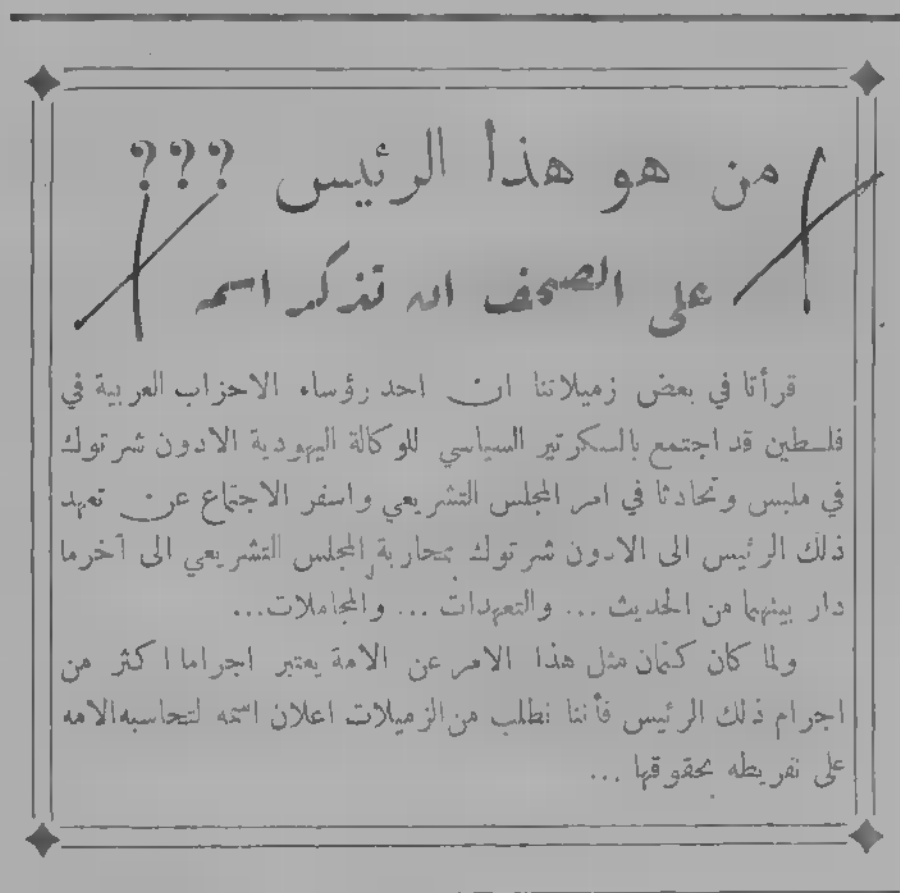 من هو هذا الرئيس ???
على الصحف ان تذكر اسمه
قرأنا في بعض زميلاتنا ان احد رؤساء الاحزاب العربية في
فلسطين قد اجتمع بالسكرتير السياسي للوكالة اليهودية الادون شرتوك
في ملبس وتحادثا في امر المجلس التشريعي واسفر الاجتماع عن تعهد
ذلك الرئيس الى الادون شرتوك بمحاربة المجلس التشريعي الى آخرما
دار بينهما من الحديث ... والتعهدات ... والمجاملات...
ولما كان كتمان مثل هذا الامر عن الامة يعتبر اجراما اكثر من
اجرام ذلك الرئيس فأننا نطلب من الزميلات اعلان اسمه لتحاسبه الامه
على تفريطه بحقوقها ...